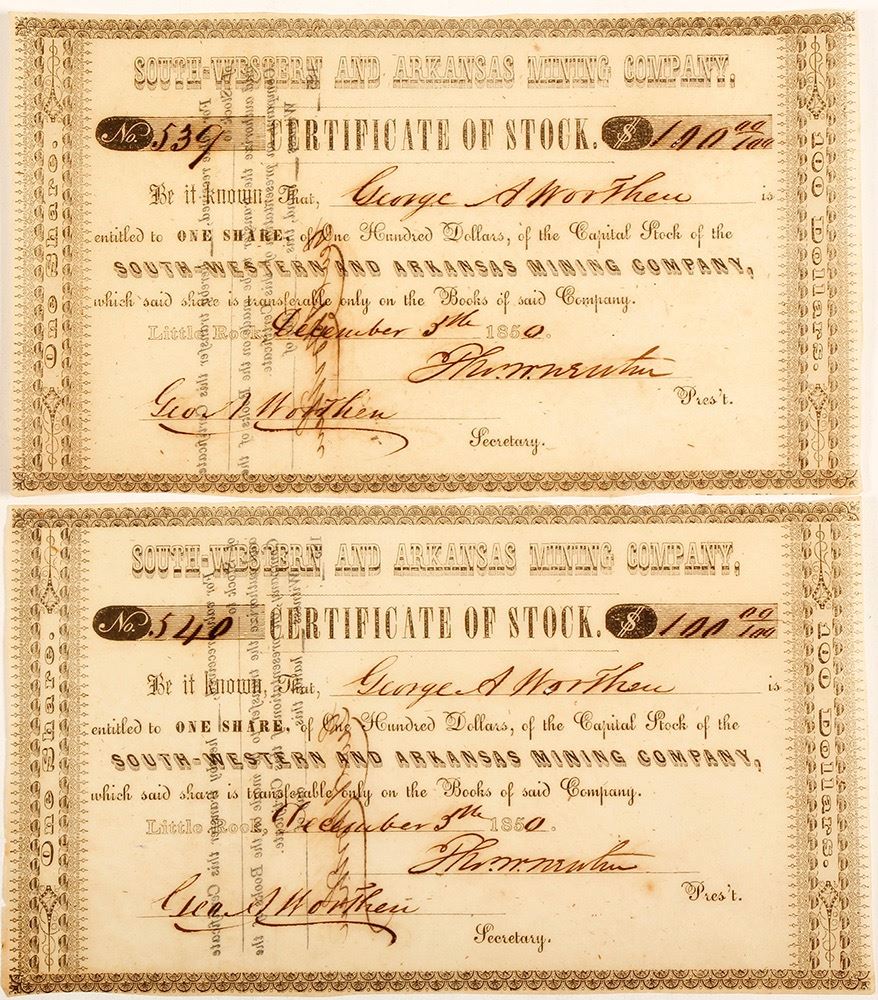 SOUTH-WESTERN AND ARKANSAS MINING COMPANY,
No. 539 CERTIFICATE OF STOCK. $ 100 00/100
Be it known, That, George A Worthen is
entitled to ONE SHARE, of One Hundred Dollars, of the Capital Stock of the
SOUTH-WESTERN AND ARKANSAS MINING COMPANY,
which said share is transferable only on the Books of said Company.
Little Rock December 5th 1850.
Tho. W. Newton
Pres't.
Geo A Worthen
Secretary.
One Share.
100 Dollars.
SOUTH-WESTERN AND ARKANSAS MINING COMPANY,
No. 540 CERTIFICATE OF STOCK. $ 100 00/100
Be it known, That, George A Worthen is
entitled to ONE SHARE, of One Hundred Dollars, of the Capital Stock of the
SOUTH-WESTERN AND ARKANSAS MINING COMPANY,
which said share is transferable only on the Books of said Company.
Little Rock, December 5th 1850.
Tho. W. Newton
Pres't.
Geo A Worthen
Secretary.
One Share.
100 Dollars.